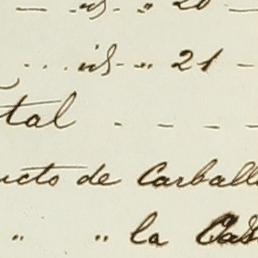 — id. " 20 —
... id. .. 21 —
tal . — — —
ucto de Carball
" " la Cas